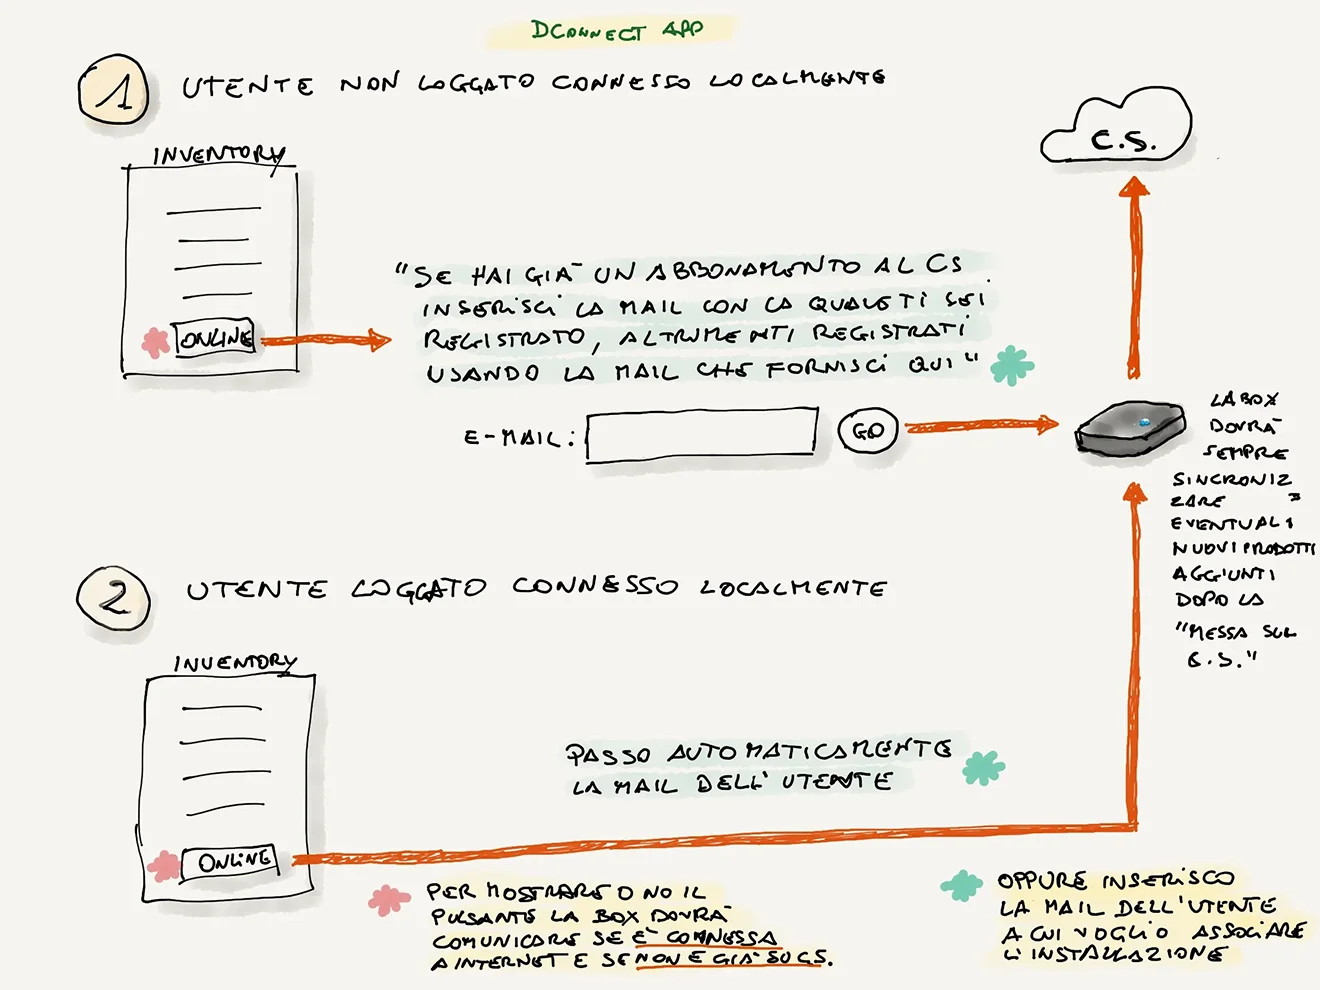 DCONNECT APP
1 UTENTE NON LOGGATO CONNESSO LOCALMENTE
C.S.
INVENTORY
"SE HAI GIÀ UN ABBONAMENTO AL CS
INSERISCI LA MAIL CON LA QUALE TI SEI
REGISTRATO, ALTRIMENTI REGISTRATI
USANDO LA MAIL CHE FORNISCI QUI"
ONLINE
E-MAIL:
GO
LA BOX
DOVRÀ
SEMPRE
SINCRONIZ
ZARE
EVENTUALI
NUOVI PRODOTTI
AGGIUNTI
DOPO LA
"MESSA SUL
C.S."
2 UTENTE LOGGATO CONNESSO LOCALMENTE
INVENTORY
PASSO AUTOMATICAMENTE
LA MAIL DELL'UTENTE
ONLINE
PER MOSTRARE O NO IL
PULSANTE LA BOX DOVRÀ
COMUNICARE SE È CONNESSA
A INTERNET E SE NON È GIÀ SU CS.
OPPURE INSERISCO
LA MAIL DELL'UTENTE
A CUI VOGLIO ASSOCIARE
L'INSTALLAZIONE